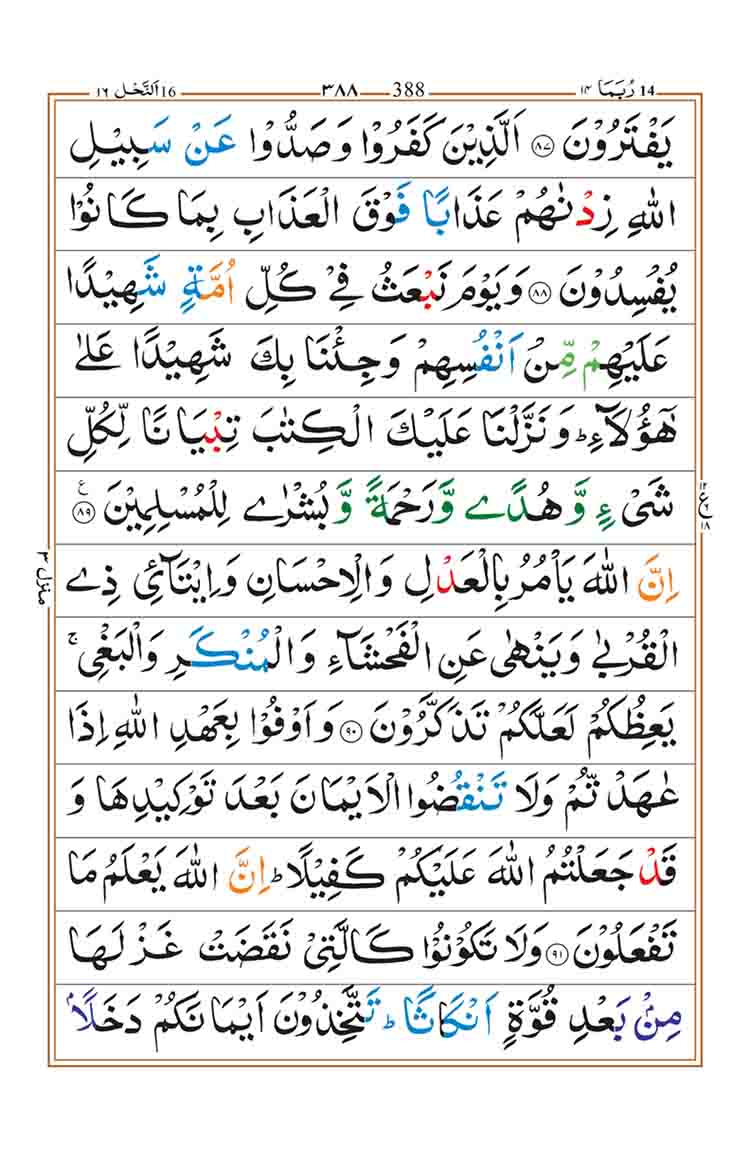 رُبَمَا 14 ١٤ — 388 — ٣٨٨ — اَلنَّحْل 16 ١٦
يَفْتَرُوْنَ ﴿٨٧﴾ اَلَّذِيْنَ كَفَرُوْا وَ صَدُّوْا عَنْ سَبِيْلِ
اللّٰهِ زِدْنٰهُمْ عَذَابًا فَوْقَ الْعَذَابِ بِمَا كَانُوْا
يُفْسِدُوْنَ ﴿٨٨﴾ وَ يَوْمَ نَبْعَثُ فِيْ كُلِّ اُمَّةٍ شَهِيْدًا
عَلَيْهِمْ مِّنْ اَنْفُسِهِمْ وَ جِئْنَا بِكَ شَهِيْدًا عَلٰى
هٰۤؤُلَآءِ ؕ وَ نَزَّلْنَا عَلَيْكَ الْكِتٰبَ تِبْيَانًا لِّكُلِّ
شَيْءٍ وَّ هُدًى وَّ رَحْمَةً وَّ بُشْرٰى لِلْمُسْلِمِيْنَ ﴿٨٩﴾ ع
اِنَّ اللّٰهَ يَاْمُرُ بِالْعَدْلِ وَ الْاِحْسَانِ وَ اِيْتَآئِ ذِى
الْقُرْبٰى وَ يَنْهٰى عَنِ الْفَحْشَآءِ وَ الْمُنْكَرِ وَ الْبَغْيِ ۚ
يَعِظُكُمْ لَعَلَّكُمْ تَذَكَّرُوْنَ ﴿٩٠﴾ وَ اَوْفُوْا بِعَهْدِ اللّٰهِ اِذَا
عٰهَدْتُّمْ وَ لَا تَنْقُضُوا الْاَيْمَانَ بَعْدَ تَوْكِيْدِهَا وَ
قَدْ جَعَلْتُمُ اللّٰهَ عَلَيْكُمْ كَفِيْلًا ؕ اِنَّ اللّٰهَ يَعْلَمُ مَا
تَفْعَلُوْنَ ﴿٩١﴾ وَ لَا تَكُوْنُوْا كَالَّتِيْ نَقَضَتْ غَزْلَهَا
مِنْۢ بَعْدِ قُوَّةٍ اَنْكَاثًا ؕ تَتَّخِذُوْنَ اَيْمَانَكُمْ دَخَلًۢا
١٢ ع ١٨
منزل ٣